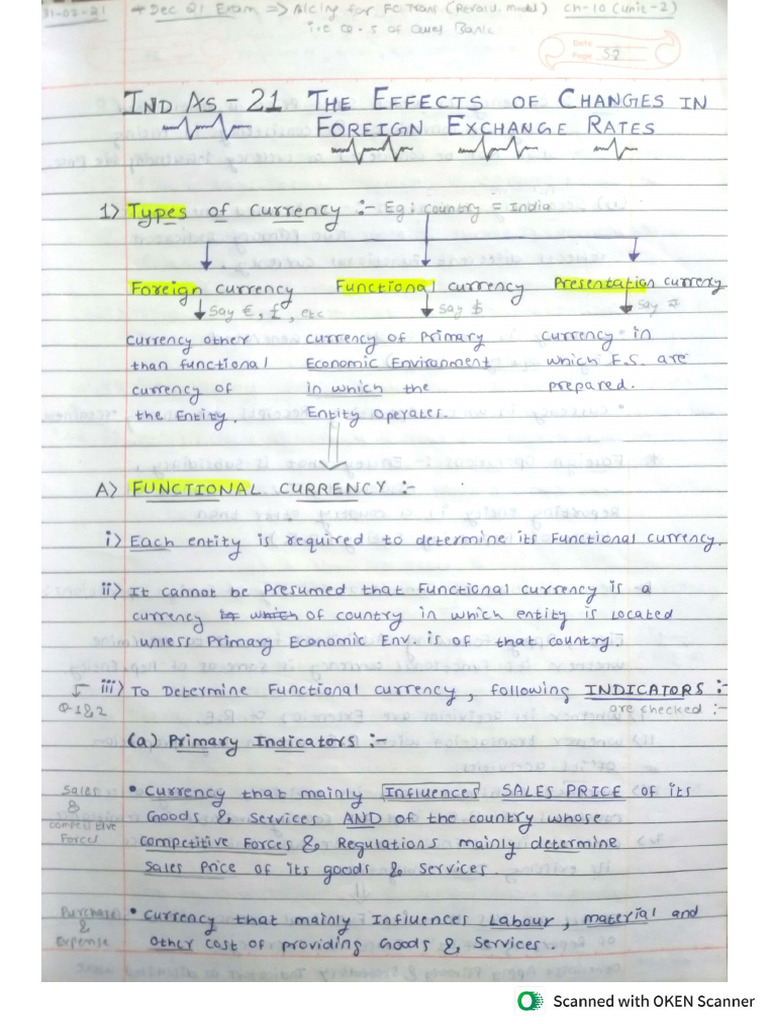 31-02-21 → Dec 21 Exam => Pricing for FC Trans (Revalu. model) Ch-10 (Unit-2)
i.e Q.5 of Ques Bank
Date
Page 58
IND AS - 21 THE EFFECTS OF CHANGES IN
FOREIGN EXCHANGE RATES
1) Types of currency :- Eg: country = India
Foreign currency Functional currency Presentation currency
Say €, £, etc Say $ Say ₹
currency other currency of Primary currency in
than functional Economic Environment which F.S. are
currency of in which the prepared.
the Entity. Entity Operates.
A) FUNCTIONAL CURRENCY :-
i) Each entity is required to determine its Functional currency.
ii) It cannot be Presumed that Functional currency is a
currency in which of country in which entity is Located
unless Primary Economic Env. is of that country
iii) To Determine Functional currency, following INDICATORS :-
Q-1&2 are checked :-
(a) Primary Indicators :-
Sales & competitive Forces
• Currency that mainly Influences SALES PRICE of its
Goods & Services AND of the country whose
competitive Forces & Regulations mainly determine
Sales Price of its goods & Services.
Purchase & Expense
• Currency that mainly Influences Labour, material and
other cost of providing Goods & Services.
Scanned with OKEN Scanner